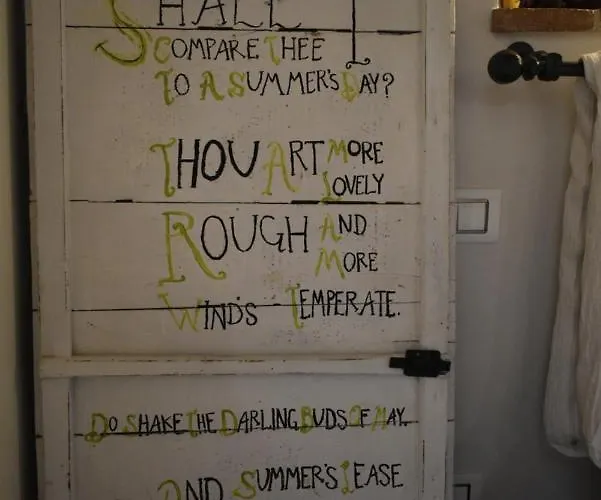 SHALL I
COMPARE THEE
TO A SUMMER'S DAY?
THOU ART MORE
LOVELY
ROUGH AND
MORE
WINDS TEMPERATE.
DO SHAKE THE DARLING BUDS OF MAY,
AND SUMMER'S LEASE